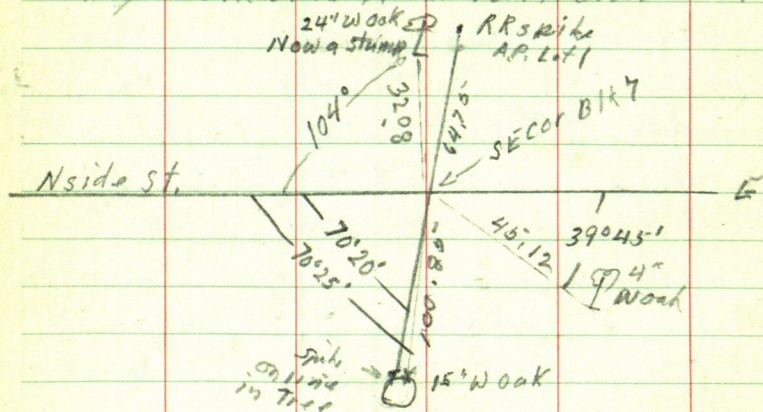 24" W oak
Now a stump
RR spike
A.P. Lot 1
104°
32.08
64.75
SE Cor Blk 7
N side St.
E
70°20'
70°25'
45.12
39°45'
4"
W oak
100.86
spike
on line
in Tree
15" W oak